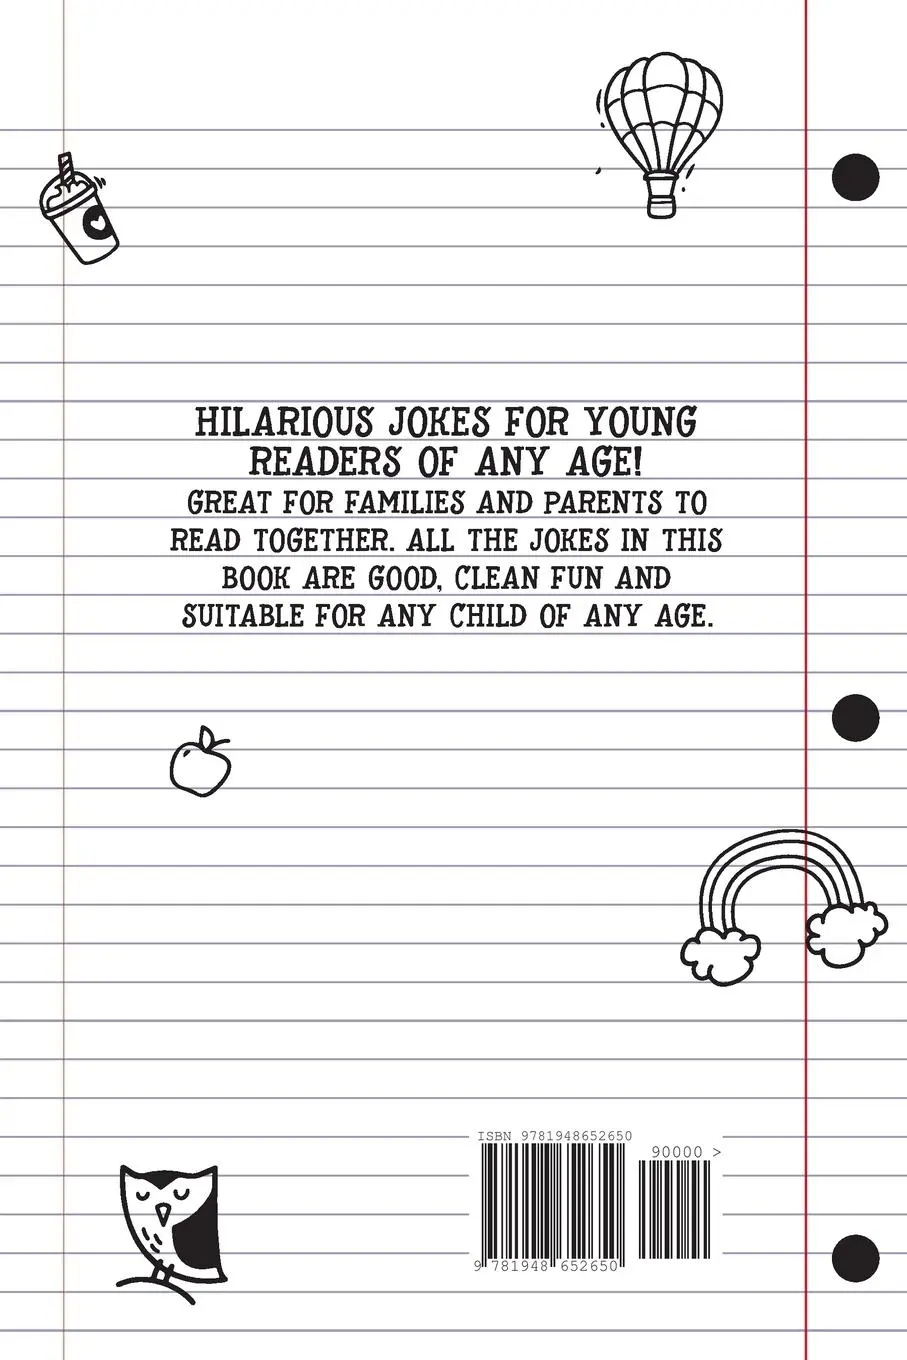 HILARIOUS JOKES FOR YOUNG
READERS OF ANY AGE!
GREAT FOR FAMILIES AND PARENTS TO
READ TOGETHER. ALL THE JOKES IN THIS
BOOK ARE GOOD, CLEAN FUN AND
SUITABLE FOR ANY CHILD OF ANY AGE.
ISBN 9781948652650
90000 >
9 781948 652650